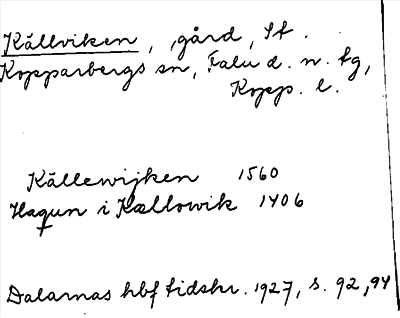 Källviken, gård, St.
Kopparbergs sn, Falu d. n. tg,
Kopp. l.
Källewijken 1560
Haqun i Kællowik 1406
Dalarnas hbf tidskr. 1927, s. 92, 94